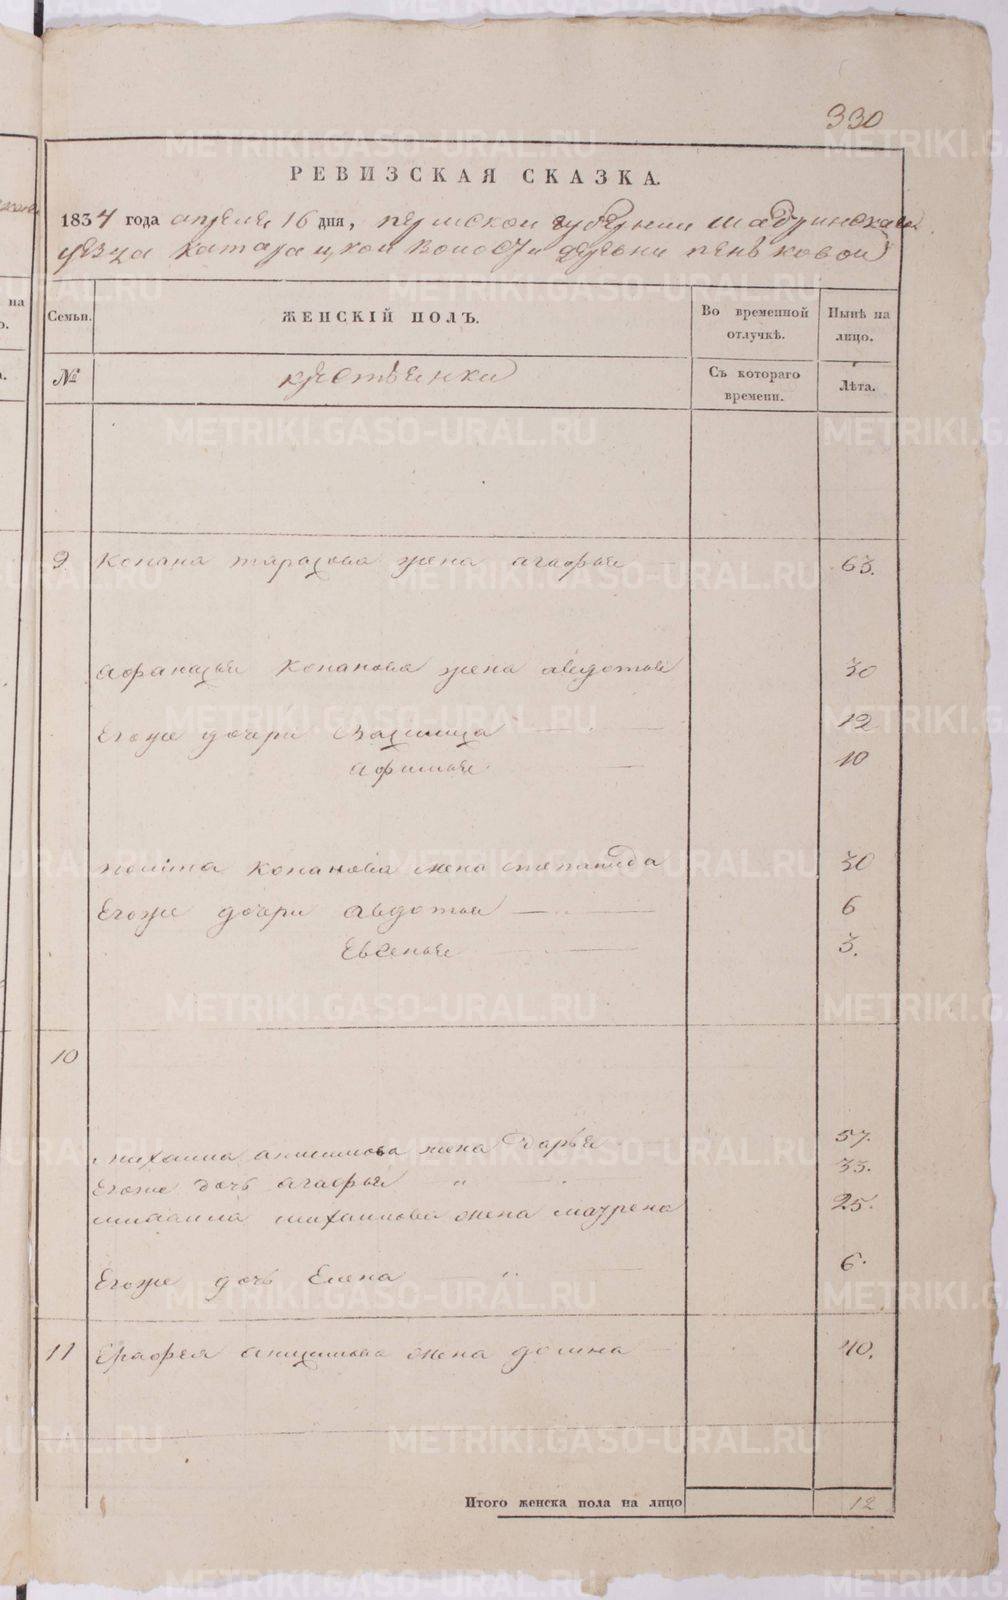 330
РЕВИЗСКАЯ СКАЗКА.
1834 года апреле 16 дня, пермской губернии шадринскаго
уезда катаравской волости деревни пеньковой
Семьи. ЖЕНСКІЙ ПОЛЪ. Во временной отлучкѣ. Нынѣ на лицо.
№ крестьянки Съ котораго времени. Лѣта.
9 Конана тарасова жена агафья 63.
Афанасья Конанова жена авдотья 30
Егоже дочери Василиса 12
Афимья 10
Конанова жена степанида 30
Егоже дочери авдотья 6
Евгенья 3.
10
михаила анисимова жена Дарья 57.
Егоже дочь агафья 33.
михаила михаилова жена маурена 25.
Егоже дочь Елена 6.
11 Ерофея анисимова жена домна 40.
Итого женска пола на лицо 12
METRIKI.GASO-URAL.RU